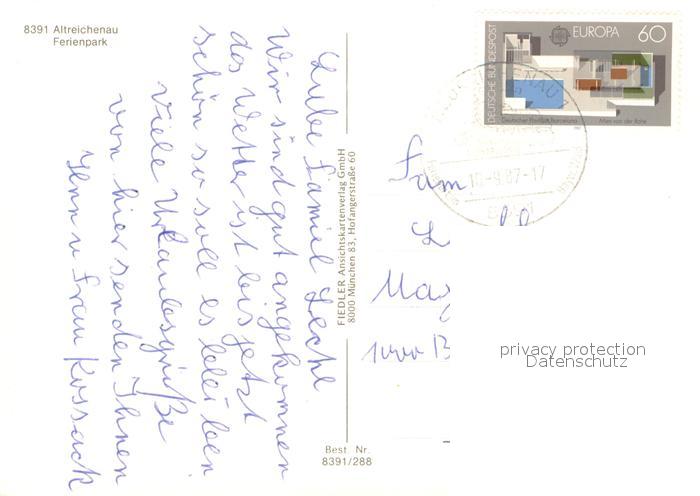 8391 Altreichenau
Ferienpark
Liebe Familie Lechl
wir sind gut angekommen
das Wetter ist bis jetzt
schön so soll es bleiben
viele Urlaubsgrüße
von hier senden Ihnen
Herr u Frau Kossack
FIEDLER Ansichtskartenverlag GmbH
8000 München 83, Hofangerstraße 60
Best. Nr.
8391/288
DEUTSCHE BUNDESPOST
EUROPA 60
Deutscher Pavillon Barcelona Mies van der Rohe
10-9.87-17
Fam
L
privacy protection
Datenschutz